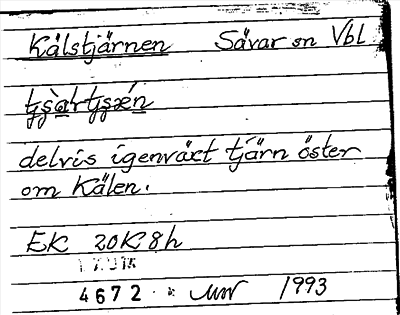 Kälstjärnen Sävar sn Vbl
delvis igenväxt tjärn öster
om Kälen.
EK 20K8h
4672 1993